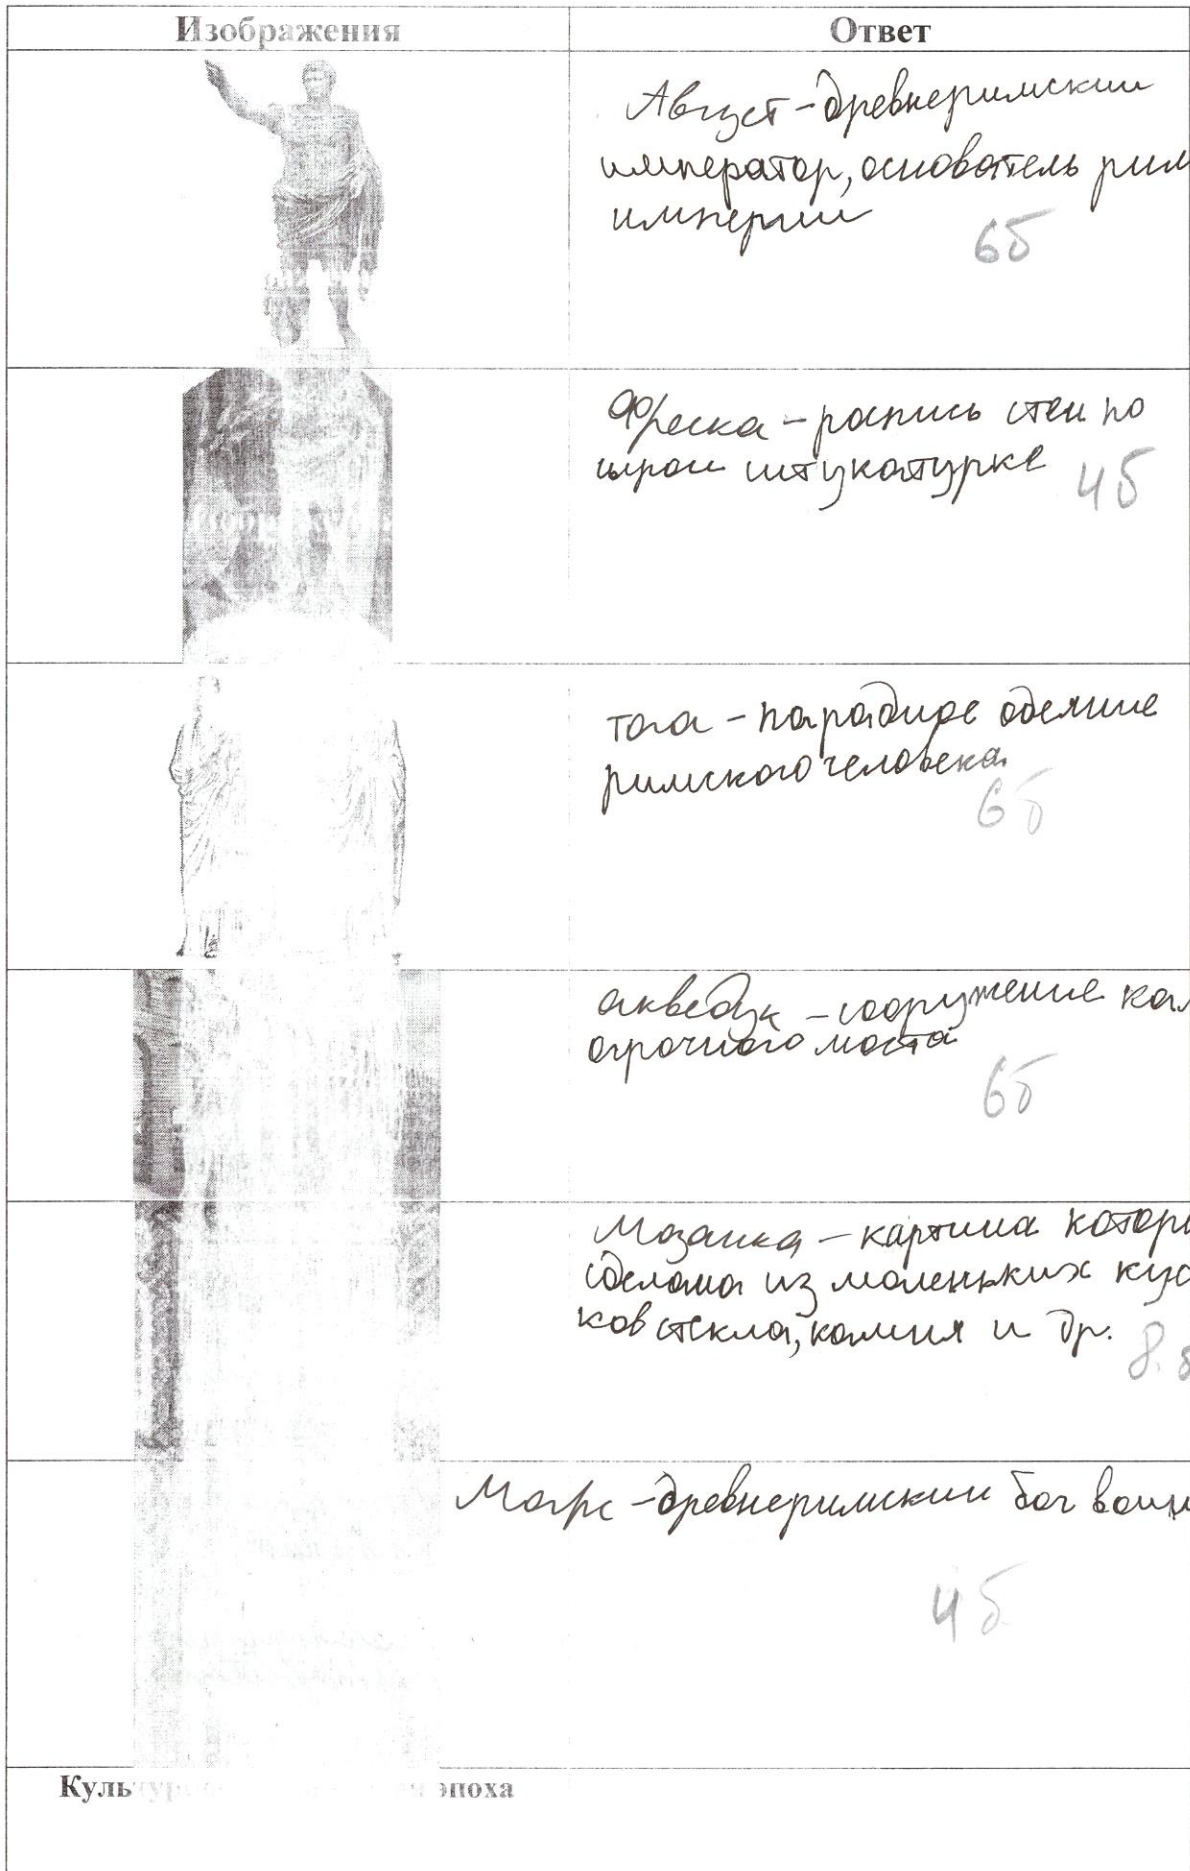 Изображения
Ответ
Август - древнеримский
император, основатель рим
империи
6б
Фреска - роспись стен по
сырой штукатурке
4б
тога - парадное одеяние
римского человека
6б
акведук - сооружение
арочного моста
6б
Мозаика - картина
сделана из маленьких кус
ков стекла, камня и др.
8.
Марс - древнеримский бог
4б
эпоха